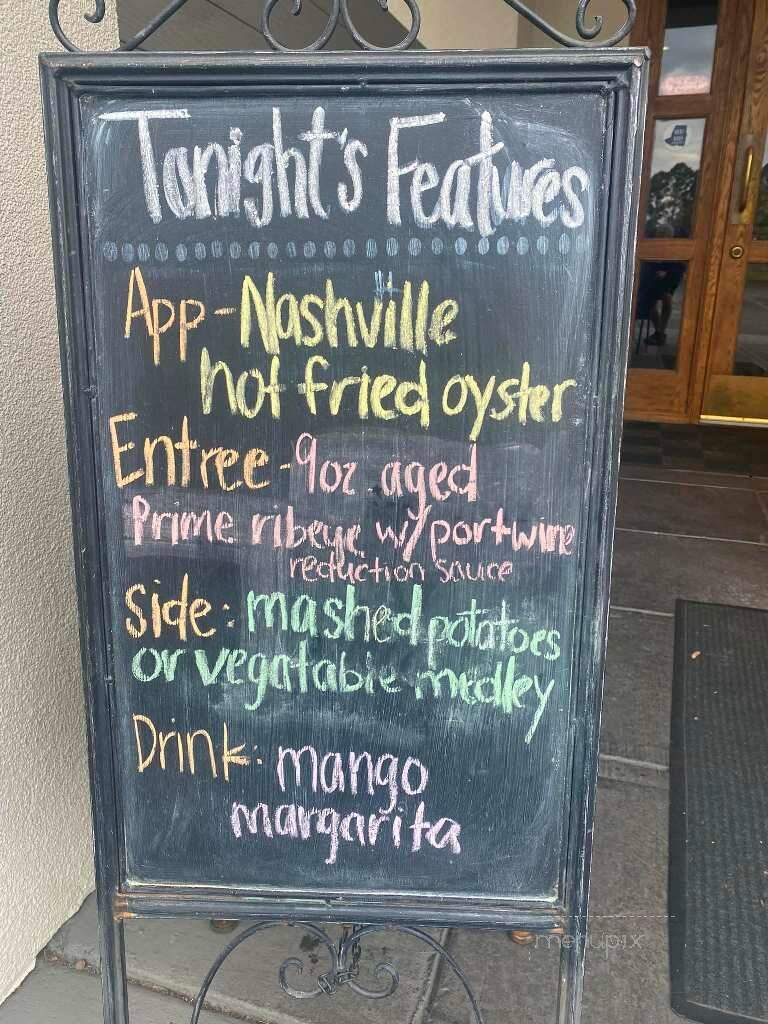 Tonight's Features
App-Nashville
hot fried oyster
Entree-9oz aged
Prime ribeye w/ portwine
reduction sauce
side: mashed potatoes
or vegatable medley
Drink: mango
margarita
menupix